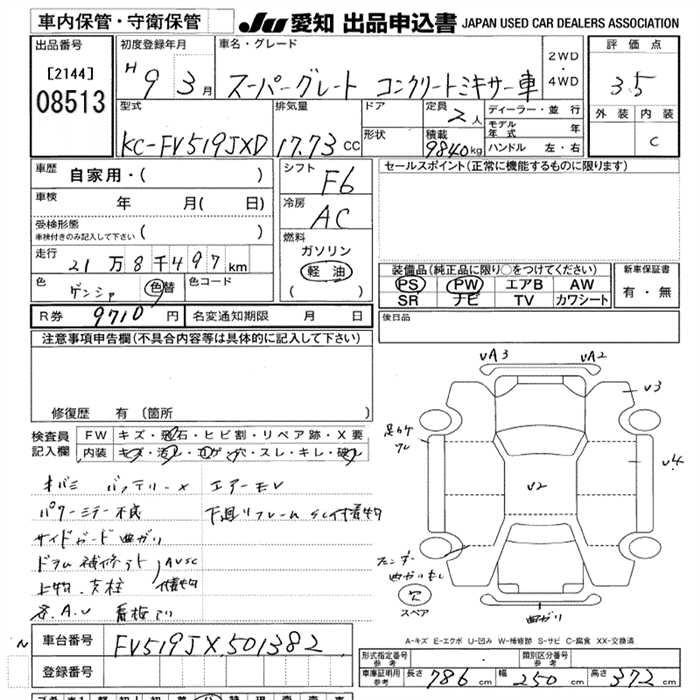 車内保管・守衛保管 JU 愛知 出品申込書 JAPAN USED CAR DEALERS ASSOCIATION
出品番号 初度登録年月 車名・グレード 2WD・4WD 評価点
[2144] H 9 3月 スーパーグレート コンクリートミキサー車 3.5
08513 型式 排気量 ドア 定員 2人 ディーラー・並行 外装 内装
KC-FV519JXD 17.73 CC 形状 積載 9840kg モデル年式 年 C
ハンドル 左・右
車歴 自家用・( ) シフト F6 セールスポイント(正常に機能するものに限ります)
車検 年 月( 日) 冷房 AC
受検形態 車検付きのみ記入して下さい 燃料
走行 21万8千497km ガソリン 軽油 ( )
装備品(純正品に限り○をつけてください) 新車保証書
色 ゲンシャ 色替 色コード PS PW エアB AW 有・無
SR ナビ TV カワシート
R券 9710円 名変通知期限 月 日 後日品
注意事項申告欄(不具合内容等は具体的に記入して下さい)
修復歴 有 (箇所 )
検査員記入欄 FW キズ・飛石・ヒビ割・リペア跡・X要
内装 キズ・汚レ・コゲ・穴・スレ・キレ・破レ
バッテリーX エアーモレ
パワーミラー不良 下廻リフレーム SC付着物
サイドガード曲ガリ
上物、支柱 付着物
UA3 UA2
U3
U4
U2
フェンダー
穴
スペア
曲ガリ
A-キズ E-エクボ U-凹み W-補修跡 S-サビ C-腐食 XX-交換済
車台番号 FV519JX,501382
登録番号
形式指定番号 参考 類別区分番号 参考
車庫証明用 参考 長さ 786 cm 幅 250 cm 高さ 372 cm